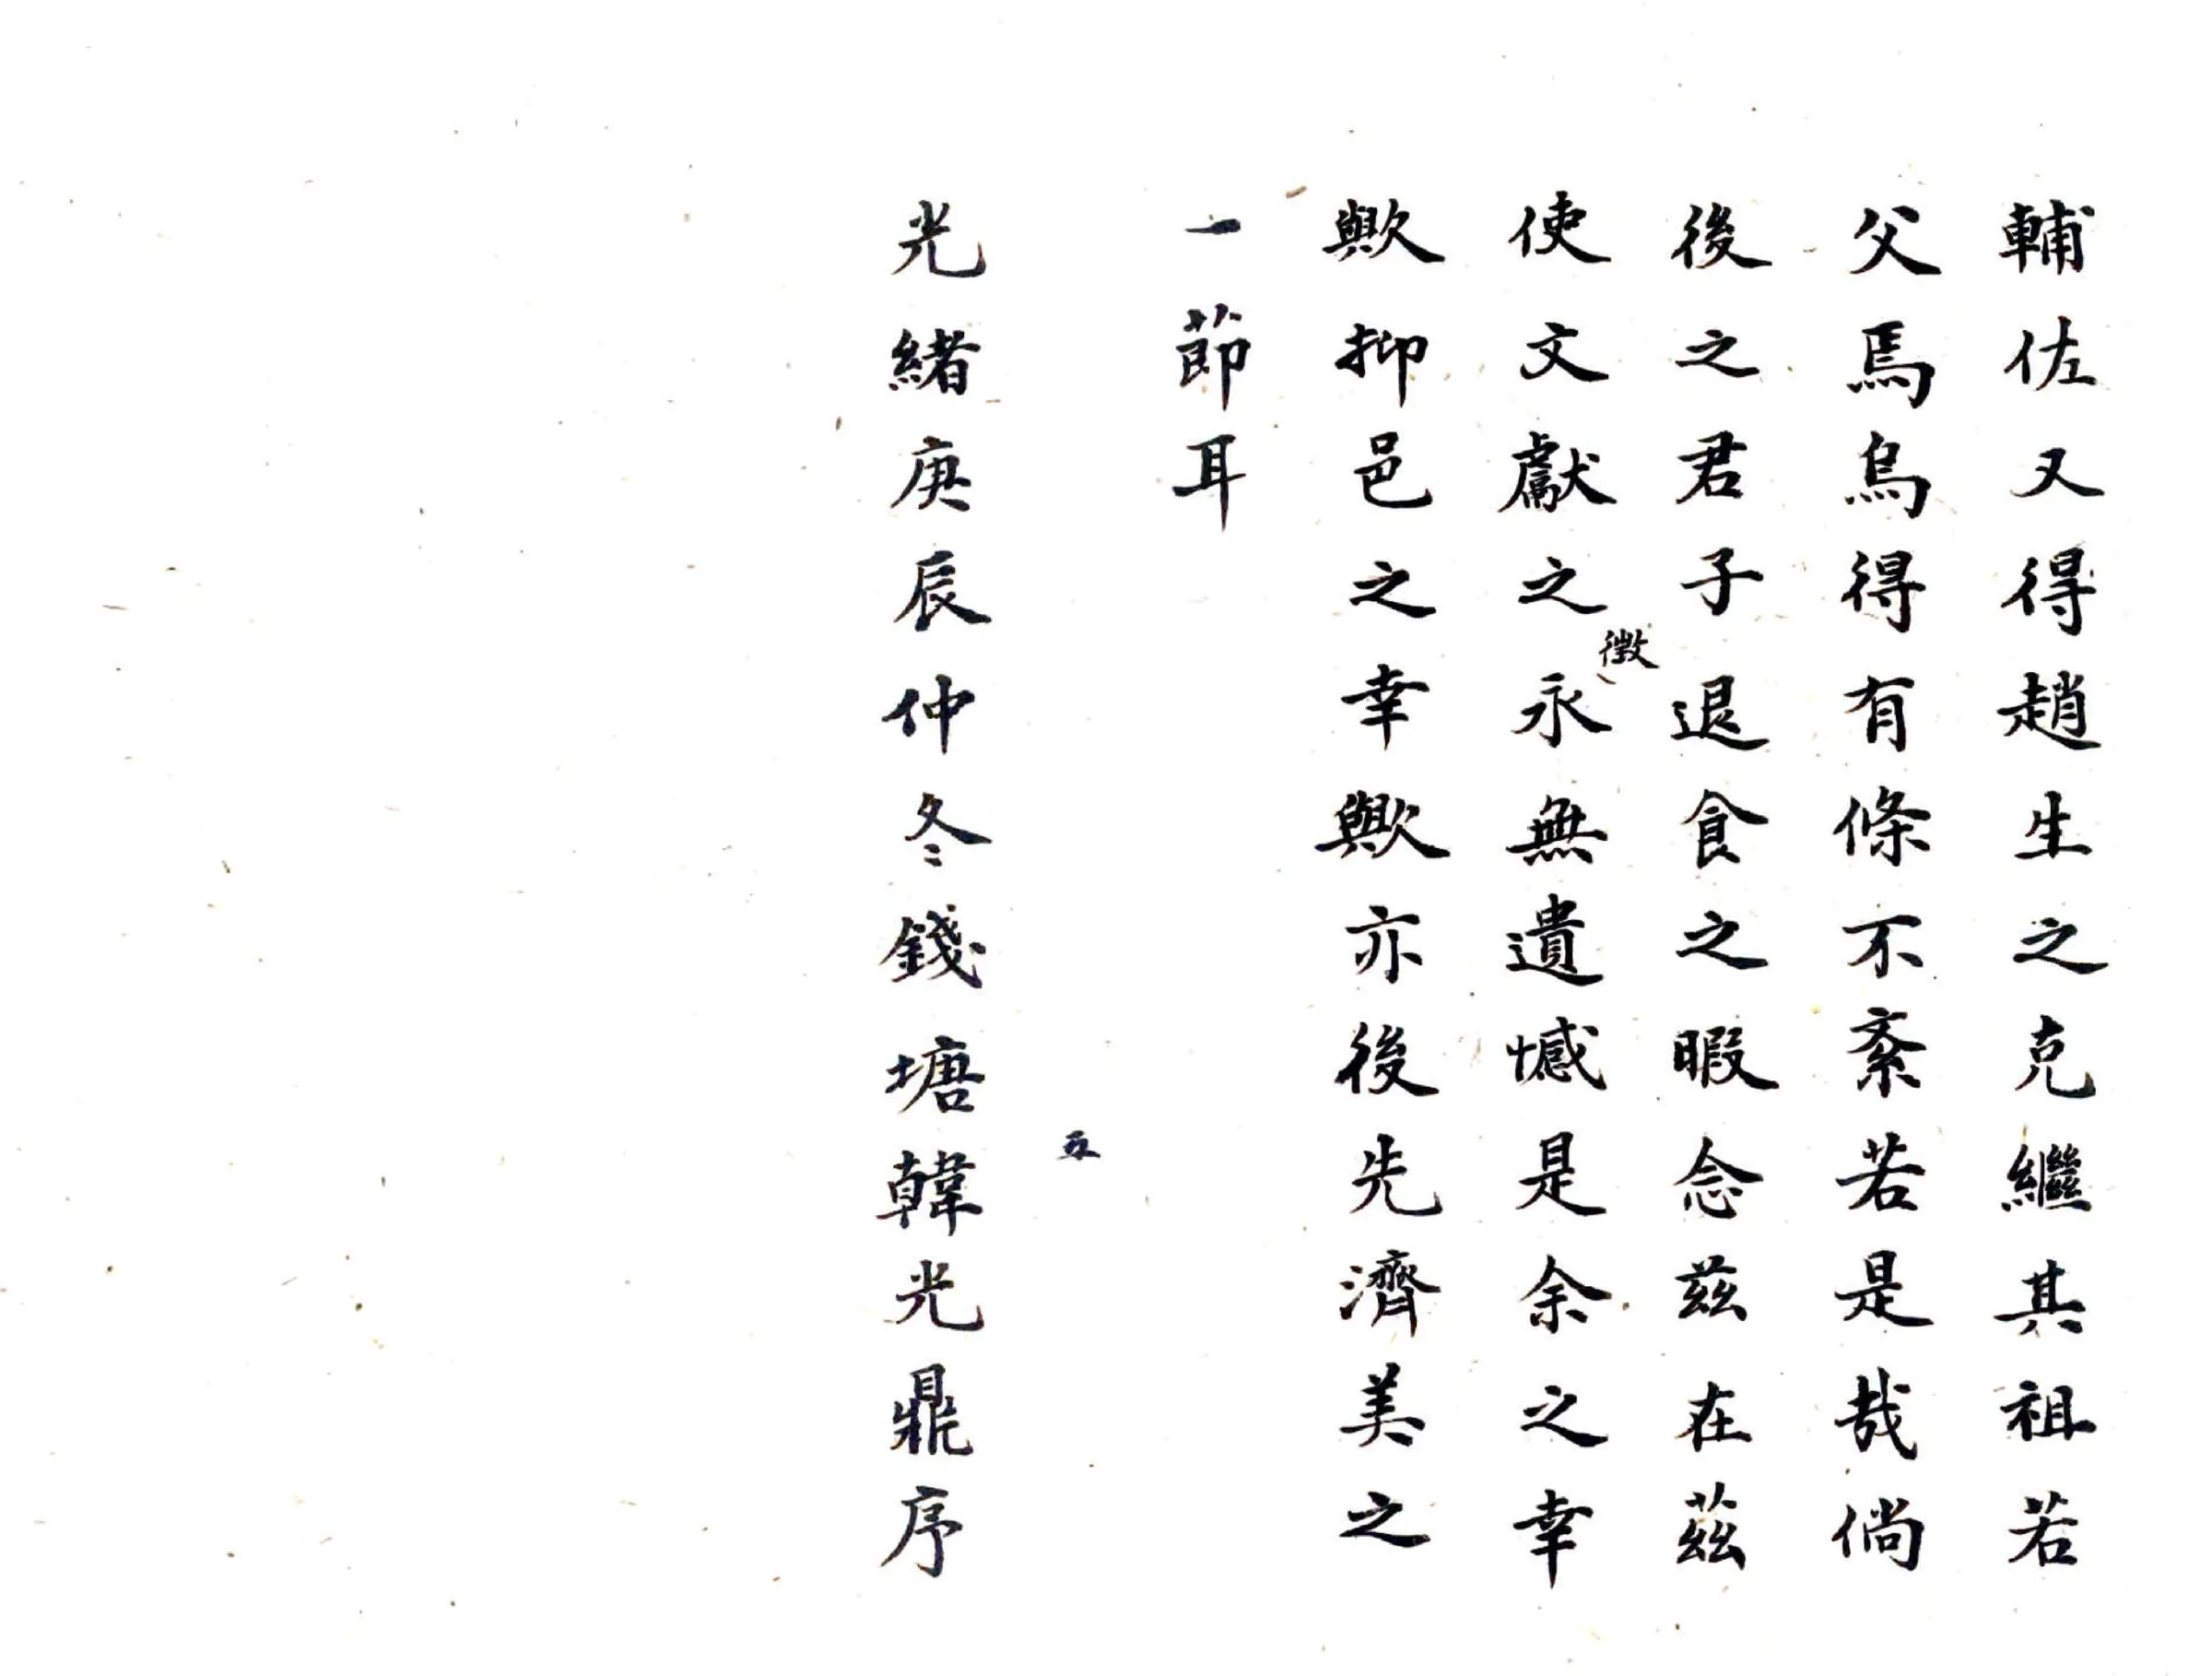 輔佐又得趙生之克繼其祖若
父焉烏得有條不紊若是哉倘
後之君子退食之暇念茲在茲
使文獻之徵永無遺憾是余之幸
歟抑邑之幸歟亦後先濟美之
一節耳
五
光緒庚辰仲冬錢塘韓光鼎序